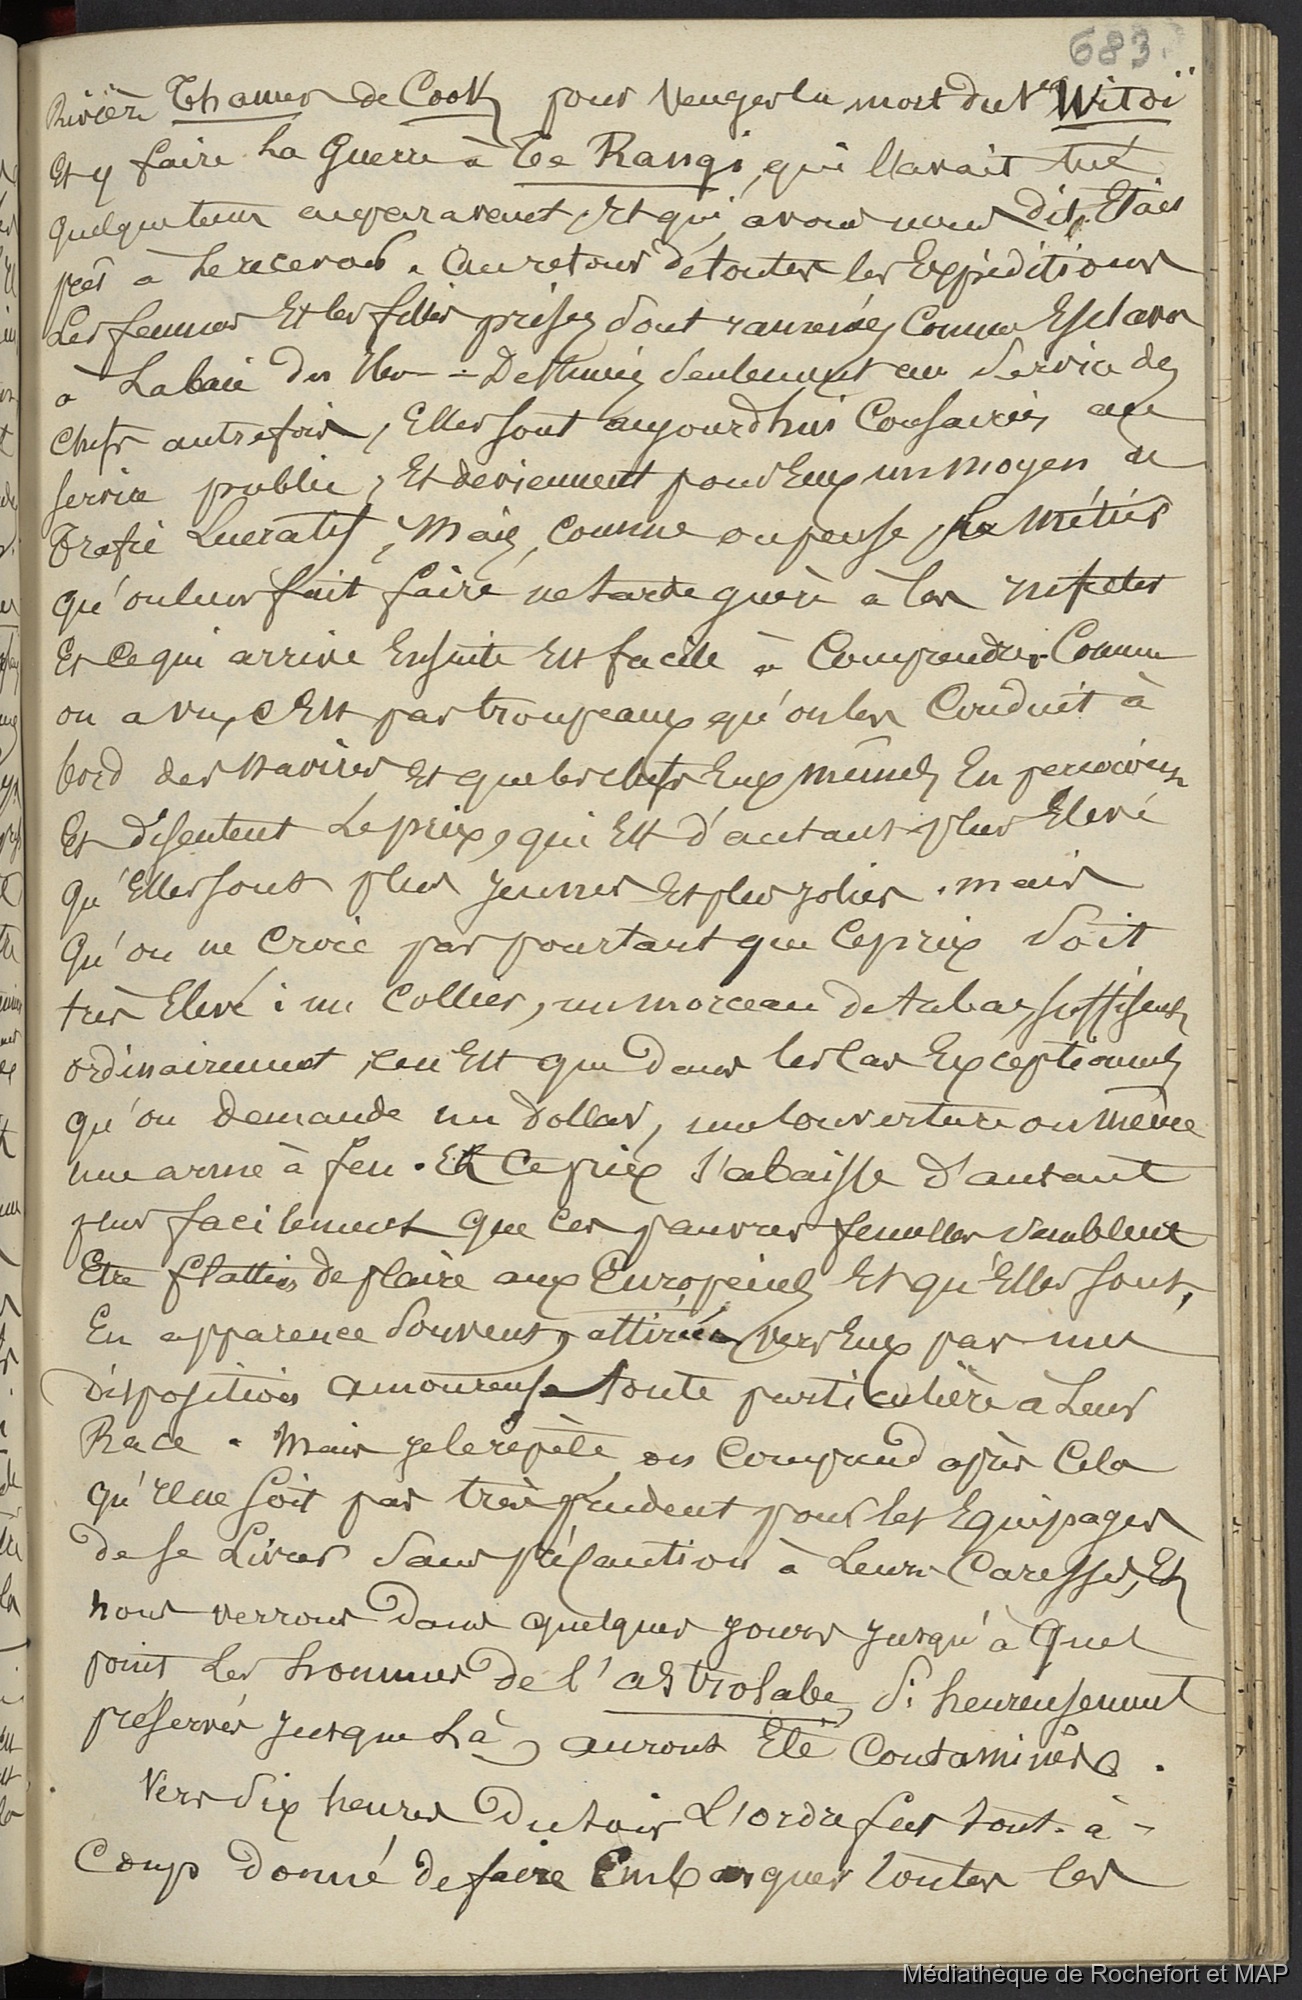 683.
Rivière Thames de Cook pour venger la mort du Witoï
Et y faire La Guerre à Te Rangi, qui l'avait tué
quelque tems auparavant, Et qui, avons nous dit, Etait
prêt à Le recevoir. Au retour de toutes les Expéditions
Les femmes Et les filles prises sont ramenées Comme Esclaves
à La baie des Iles — Destinées Seulement au Service des
chefs autrefois, Elles sont aujourd'hui Consacrées au
service public, Et deviennent pour Eux un moyen de
Trafic Lucratif, Mais, comme on pense, Le Métier
qu'on leur fait faire ne tarde guère à les infecter
Et ce qui arrive Ensuite Est facile à Comprendre. Comme
on a vu, c'Est par troupeaux qu'on les Conduit à
bord des navires Et que les chefs Eux mêmes En
Et discutent Le prix, qui Est d'autant plus Elevé
Qu'Elles sont plus jeunes Et plus jolies. mais
Qu'on ne Croie pas pourtant que Ce prix Soit
très Elevé : un Collier, un morceau de tabac, suffisent
ordinairement, ce n'Est que dans les Cas Exceptionnels
qu'on demande un Dollar, une Couverture ou même
une arme à feu. Et Ce prix s'abaisse d'autant
plus facilement que Ces pauvres femelles semblent
Etre flattées de plaire aux Européens Et qu'Elles sont,
En apparence Souvent, attirées vers Eux par une
disposition amoureuse toute particulière à Leur
Race. Mais je le répète on Comprend après Cela
qu'il ne soit pas très prudent pour les Equipages
de se Livrer Sans précaution à Leurs Caresses, Et
nous verrons Dans quelques jours jusqu'à Quel
point Les hommes de l'astrolabe, Si heureusement
préservés jusque Là, auront Eté Contaminés.
Vers Dix heures Du Soir L'ordre fut tout-à-
Coup Donné de faire Embarquer toutes les
Médiathèque de Rochefort et MAP